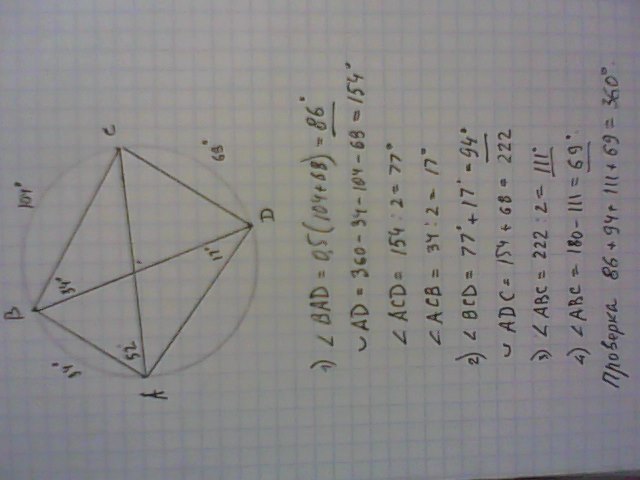 B
104°
C
34°
34°
52
68°
17°
A
D
1) ∠ BAD = 0,5 (104+68) = 86°
◡ AD = 360 - 34 - 104 - 68 = 154°
∠ ACD = 154 : 2 = 77°
∠ ACB = 34 : 2 = 17°
2) ∠ BCD = 77° + 17° = 94°
◡ ADC = 154 + 68 = 222
3) ∠ ABC = 222 : 2 = 111°
4) ∠ ABC = 180 - 111 = 69°
Проверка 86 + 94 + 111 + 69 = 360°